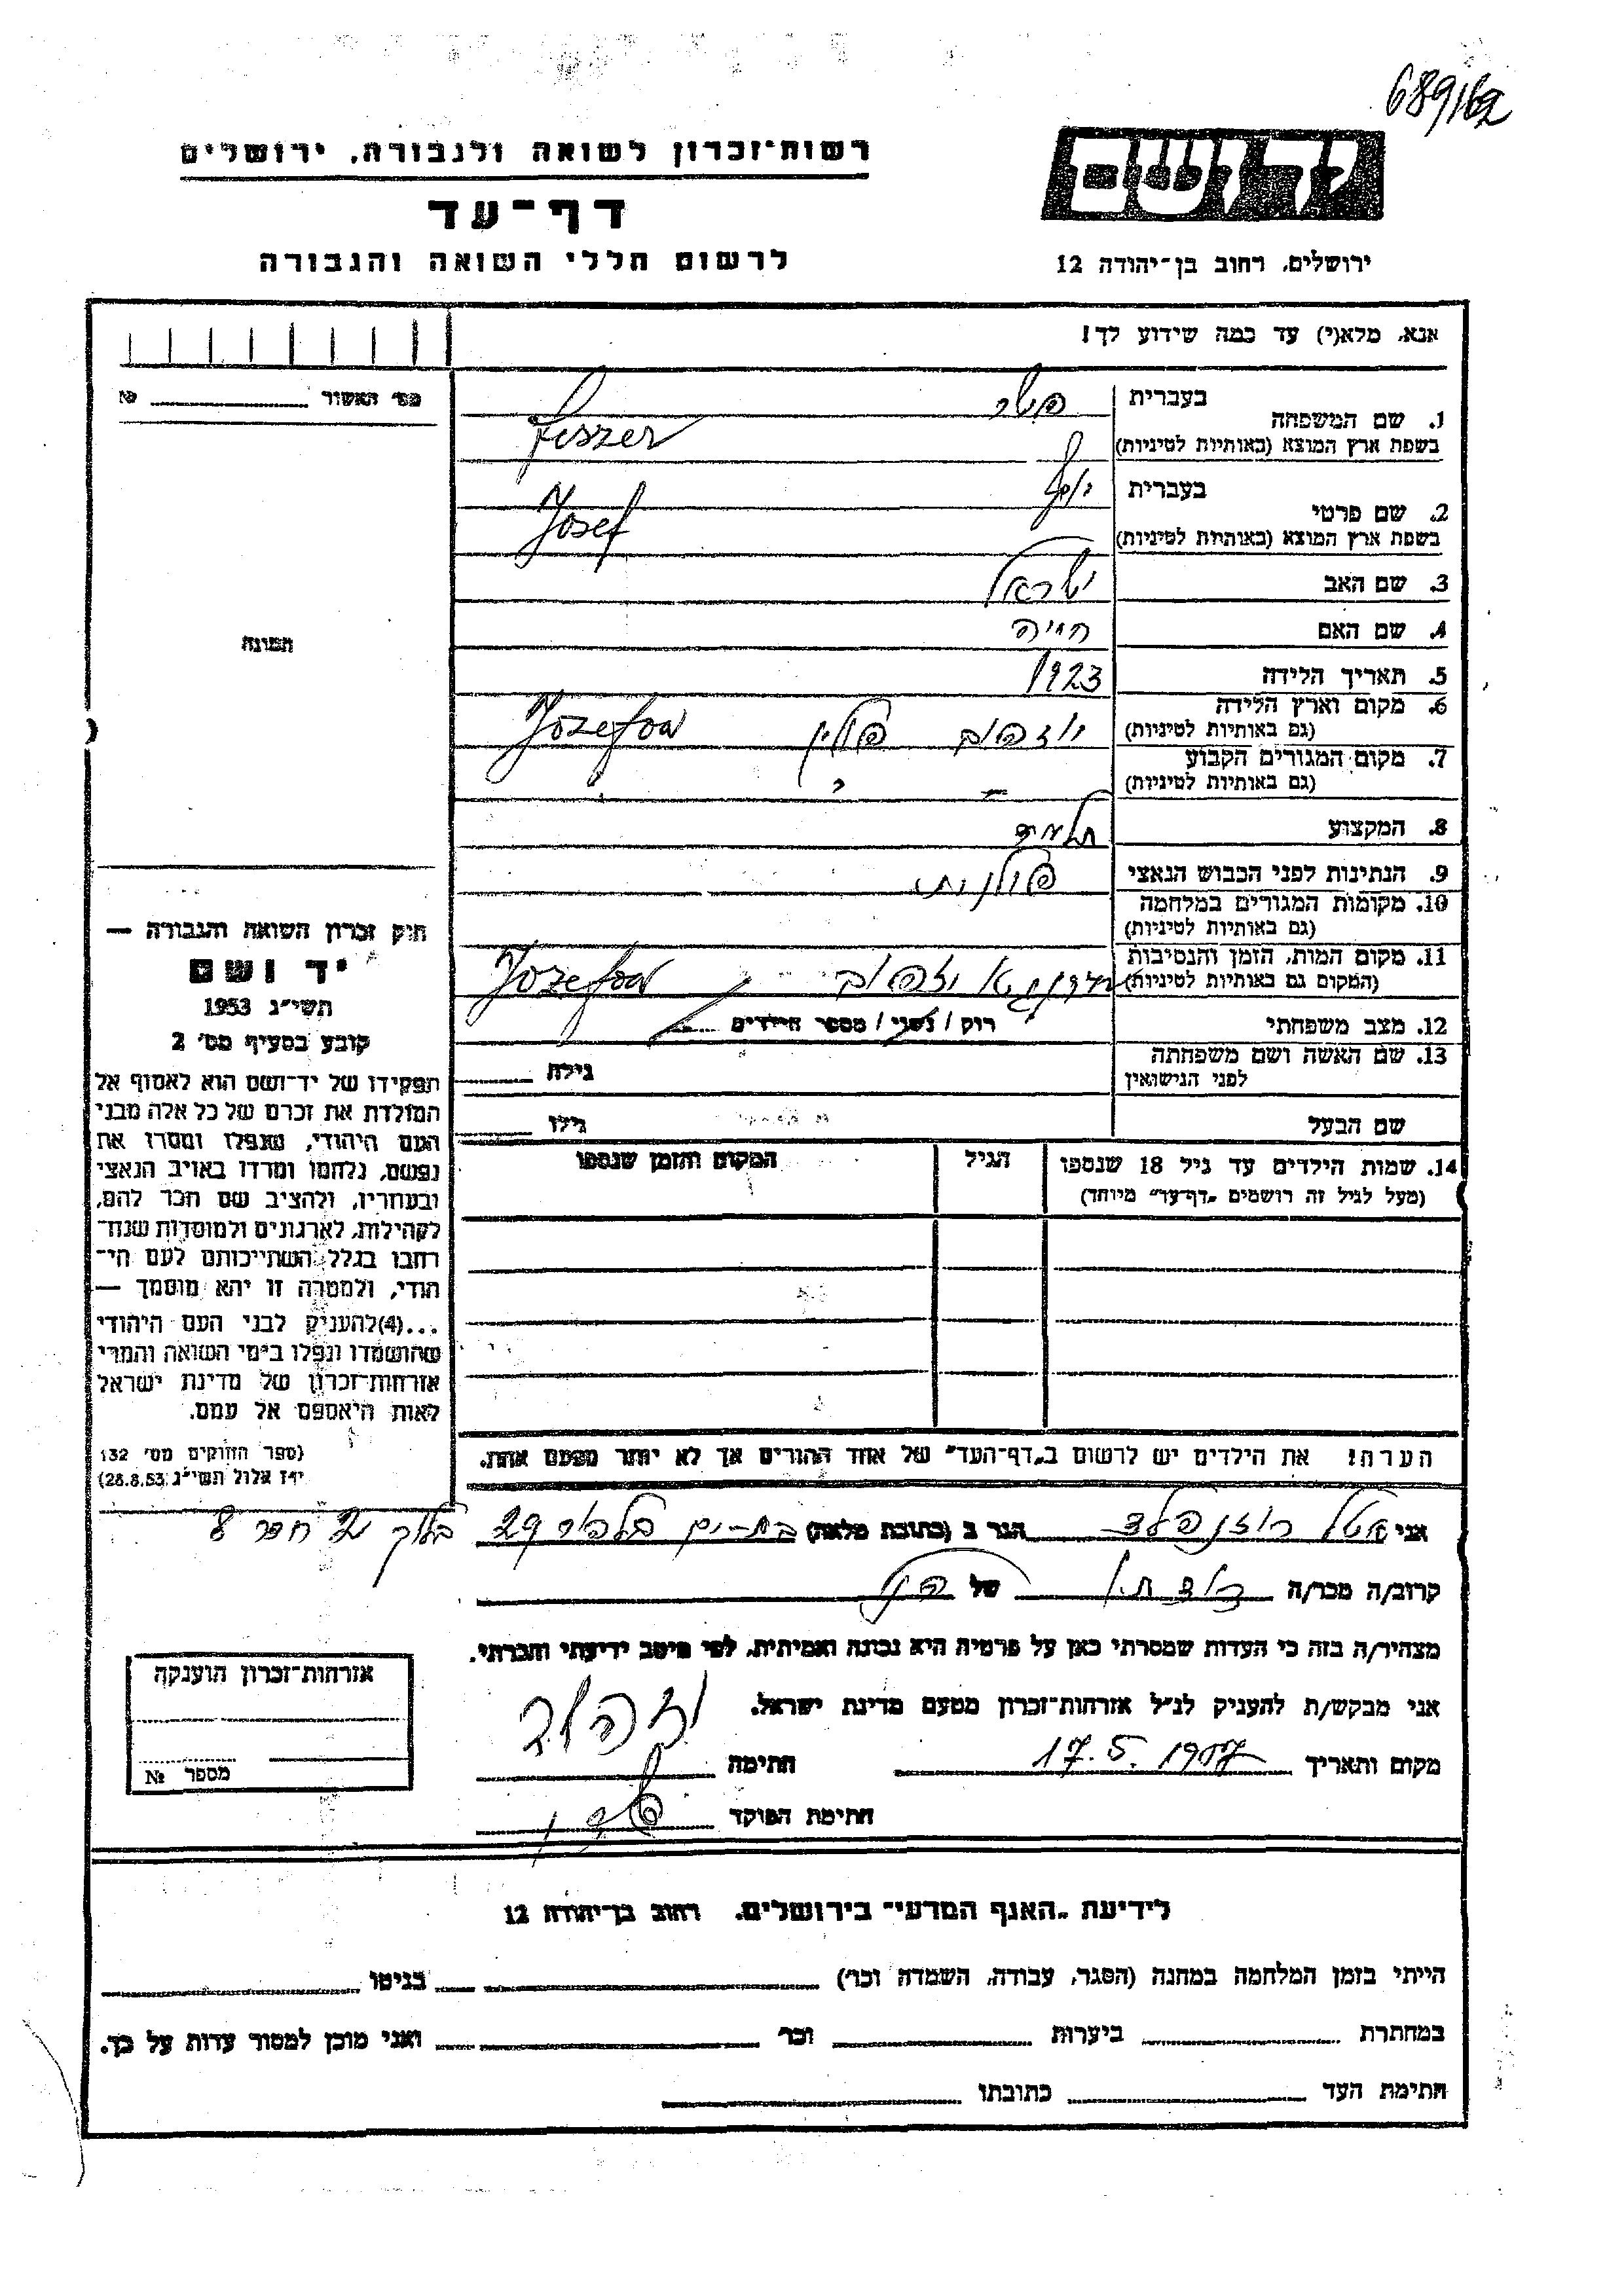 689/62
יד ושם
רשות־זכרון לשואה ולגבורה, ירושלים
דף־עד
לרשום חללי השואה והגבורה
ירושלים, רחוב בן־יהודה 12
אנא, מלא(י) עד כמה שידוע לך!
מס׳ האשור № 
1. שם המשפחה
בעברית פישר
בשפת ארץ המוצא (באותיות לטיניות) Fiszer
2. שם פרטי
בעברית יוסף
בשפת ארץ המוצא (באותיות לטיניות) Josef
3. שם האב ישראל
4. שם האם חייה
5. תאריך הלידה 1923
6. מקום וארץ הלידה
(גם באותיות לטיניות) יוזפוב פולין Jozefow
7. מקום המגורים הקבוע
(גם באותיות לטיניות)
8. המקצוע תלמיד
9. הנתינות לפני הכבוש הנאצי פולנית
10. מקומות המגורים במלחמה
(גם באותיות לטיניות)
11. מקום המות, הזמן והנסיבות
(המקום גם באותיות לטיניות) יוזפוב Jozefow
12. מצב משפחתי רווק / נשוי / מספר הילדים
13. שם האשה ושם משפחתה
לפני הנישואין גילה
שם הבעל גילו
14. שמות הילדים עד גיל 18 שנספו
(מעל לגיל זה רושמים „דף־עד״ מיוחד)
הגיל
המקום והזמן שנספו
הערה! את הילדים יש לרשום ב„דף־העד״ של אחד ההורים אך לא יותר מפעם אחת.
תמונה
חוק זכרון השואה והגבורה —
יד ושם
תשי״ג 1953
קובע בסעיף מס׳ 2
תפקידו של יד־ושם הוא לאסוף אל
המולדת את זכרם של כל אלה מבני
העם היהודי, שנפלו ומסרו את
נפשם, נלחמו ומרדו באויב הנאצי
ובעוזריו, ולהציב שם וזכר להם,
לקהילות, לארגונים ולמוסדות שנח־
רבו בגלל השתייכותם לעם הי־
הודי, ולמטרה זו יהא מוסמך —
...(4)להעניק לבני העם היהודי
שהושמדו ונפלו בימי השואה והמרי
אזרחות־זכרון של מדינת ישראל
לאות היאספם אל עמם.
(ספר החוקים מס׳ 132
י״ז אלול תשי״ג 28.8.53)
אני אטל רוזנפלד הגר ב (כתובת מלאה) בת-ים בלפור 29 בלוק 2
קרוב/ה מכר/ה של
מצהיר/ה בזה כי העדות שמסרתי כאן על פרטיה היא נכונה ואמיתית, לפי מיטב ידיעתי והכרתי.
אני מבקש/ת להעניק לנ״ל אזרחות־זכרון מטעם מדינת ישראל.
מקום ותאריך 17.5.1957 חתימה
חתימת הפוקד
אזרחות־זכרון הוענקה
מספר №
לידיעת „האגף המדעי״ בירושלים, רחוב בן־יהודה 12
הייתי בזמן המלחמה במחנה (הסגר, עבודה, השמדה וכו׳) בגיטו
במחתרת ביערות וכו׳ ואני מוכן למסור עדות על כך.
חתימת העד כתובתו